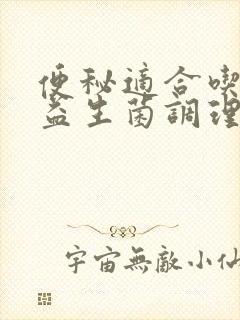 便秘適合喫
益生菌調理
宇宙無敵小仙